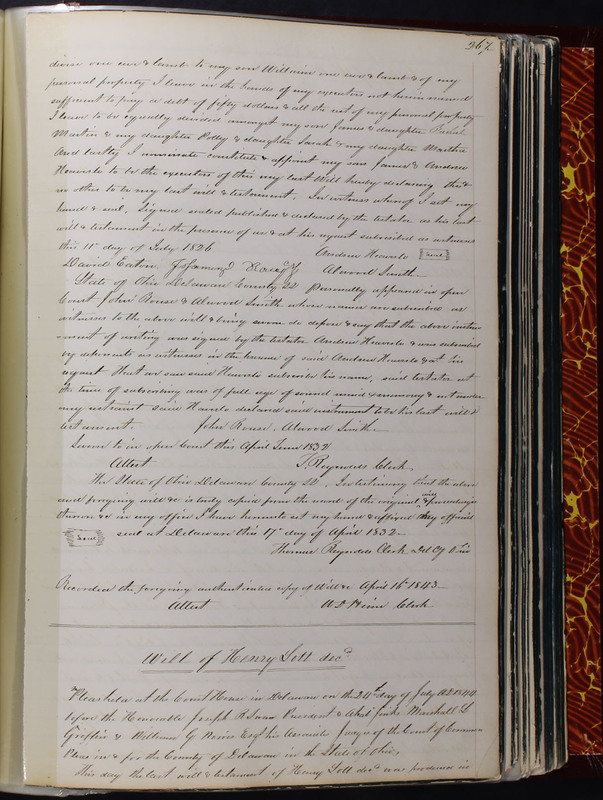 267
one ewe & lamb to my son William one ewe & lamb & of my
personal property I leave in the hands of my executors not herein named
sufficient to pay a debt of fifty dollars & all the rest of my personal property
I leave to be equally divided amongst my son James & daughter
Martin & my daughter Polly & daughter Sarah & my daughter Martha
And lastly I nominate constitute & appoint my sons James & Andrew
Heavelo to be the executors of this my last will hereby declaring this &
no other to be my last will & testament. In witness whereof I set my
hand & seal. Signed sealed published & declared by the testator as his last
will & testament in the presence of us & at his request subscribed as witnesses
this 15th day of July 1826 Andrew Heavelo Seal
David Eaton Alwood Smith
State of Ohio Delaware County SS Personally appeared in open
Court John Rouse & Alwood Smith whose names are subscribed as
witnesses to the above will & being sworn do depose & say that the above instru-
-ment of writing was signed by the testator Andrew Heavelo & was subscribed
by deponents as witnesses in the presence of said Andrew Heavelo & at his
request that we saw said Heavelo subscribe his name, said testator at
the time of subscribing was of full age of sound mind & memory & not under
any restraint said Heavelo declared said instrument to be his last will &
testament. John Rouse. Alwood Smith
Sworn to in open Court this April Term 1832
Attest T. Reynolds Clerk
The State of Ohio Delaware County SS. In testimony that the above
and forgoing will &c is truly copied from the record of the original will & proceedings
thereon &c in my office I have hereunto set my hand & affixed my official
Seal seal at Delaware this 17th day of April 1832
Thomas Reynolds Clerk Del Cy Ohio
Recorded the forgoing authenticated copy of Will &c April 16th 1843
Attest W D Heim Clerk
Will of Henry Lott decd
Pleas held at the Court House in Delaware on the 24th day of July AD 1844
before the Honorable Joseph R Swan President & Ahab Jinks Marshall L
Griffin & William G Norris Esqs his Associates Judges of the Court of Common
Pleas in & for the County of Delaware in the State of Ohio,
This day the last will & testament of Henry Lott decd was produced in